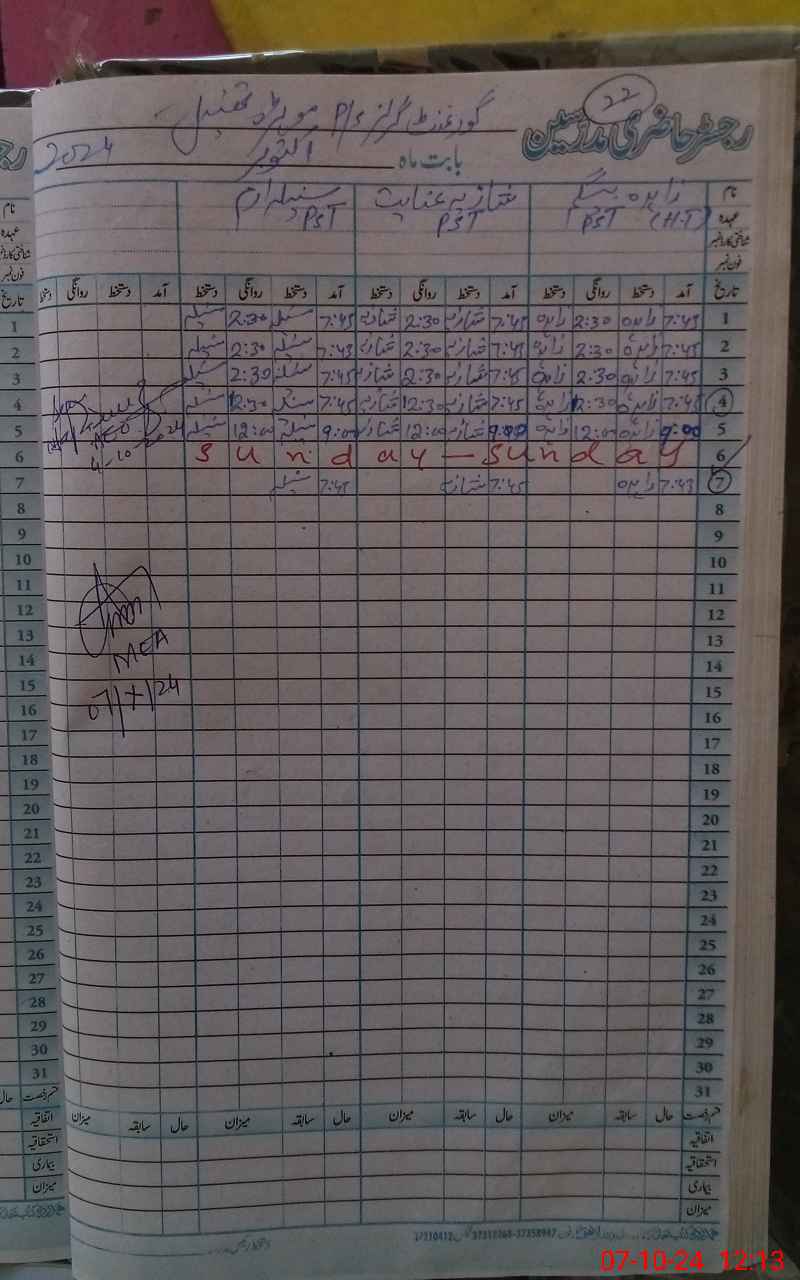 ۲۲
رجسٹر حاضری مدرسین
گورنمنٹ گرلز P/S
بابت ماہ اکتوبر 2024
نام زاہدہ بیگم شازیہ عنایت سنیلہ ارم
عہدہ PST (H.T) PST PST
شناختی کارڈ نمبر
فون نمبر
تاریخ آمد دستخط روانگی دستخط آمد دستخط روانگی دستخط آمد دستخط روانگی دستخط آمد دستخط روانگی دستخط
1 7:45 زاہدہ 2:30 زاہدہ 7:45 شازیہ 2:30 شازیہ 7:45 سنیلہ 2:30 سنیلہ
2 7:45 زاہدہ 2:30 زاہدہ 7:45 شازیہ 2:30 شازیہ 7:43 سنیلہ 2:30 سنیلہ
3 7:45 زاہدہ 2:30 زاہدہ 7:45 شازیہ 2:30 شازیہ 7:45 سنیلہ 2:30 سنیلہ
4 7:45 زاہدہ 12:30 زاہدہ 7:45 شازیہ 12:30 شازیہ 7:45 سنیلہ 12:30 سنیلہ
5 9:00 زاہدہ 12:00 زاہدہ 9:00 شازیہ 12:00 شازیہ 9:00 سنیلہ 12:00 سنیلہ
AEO
4-10-2024
6 Sunday — Sunday
7 7:43 زاہدہ 7:45 شازیہ 7:45 سنیلہ
8
9
10
11
12
13
14
MEA
15
16
07/X/24
17
18
19
20
21
22
23
24
25
26
27
28
29
30
31
قسم رخصت حال سابقہ میزان حال سابقہ میزان حال سابقہ میزان حال سابقہ میزان
اتفاقیہ
استحقاقیہ
بیماری
میزان
07-10-24 12:13